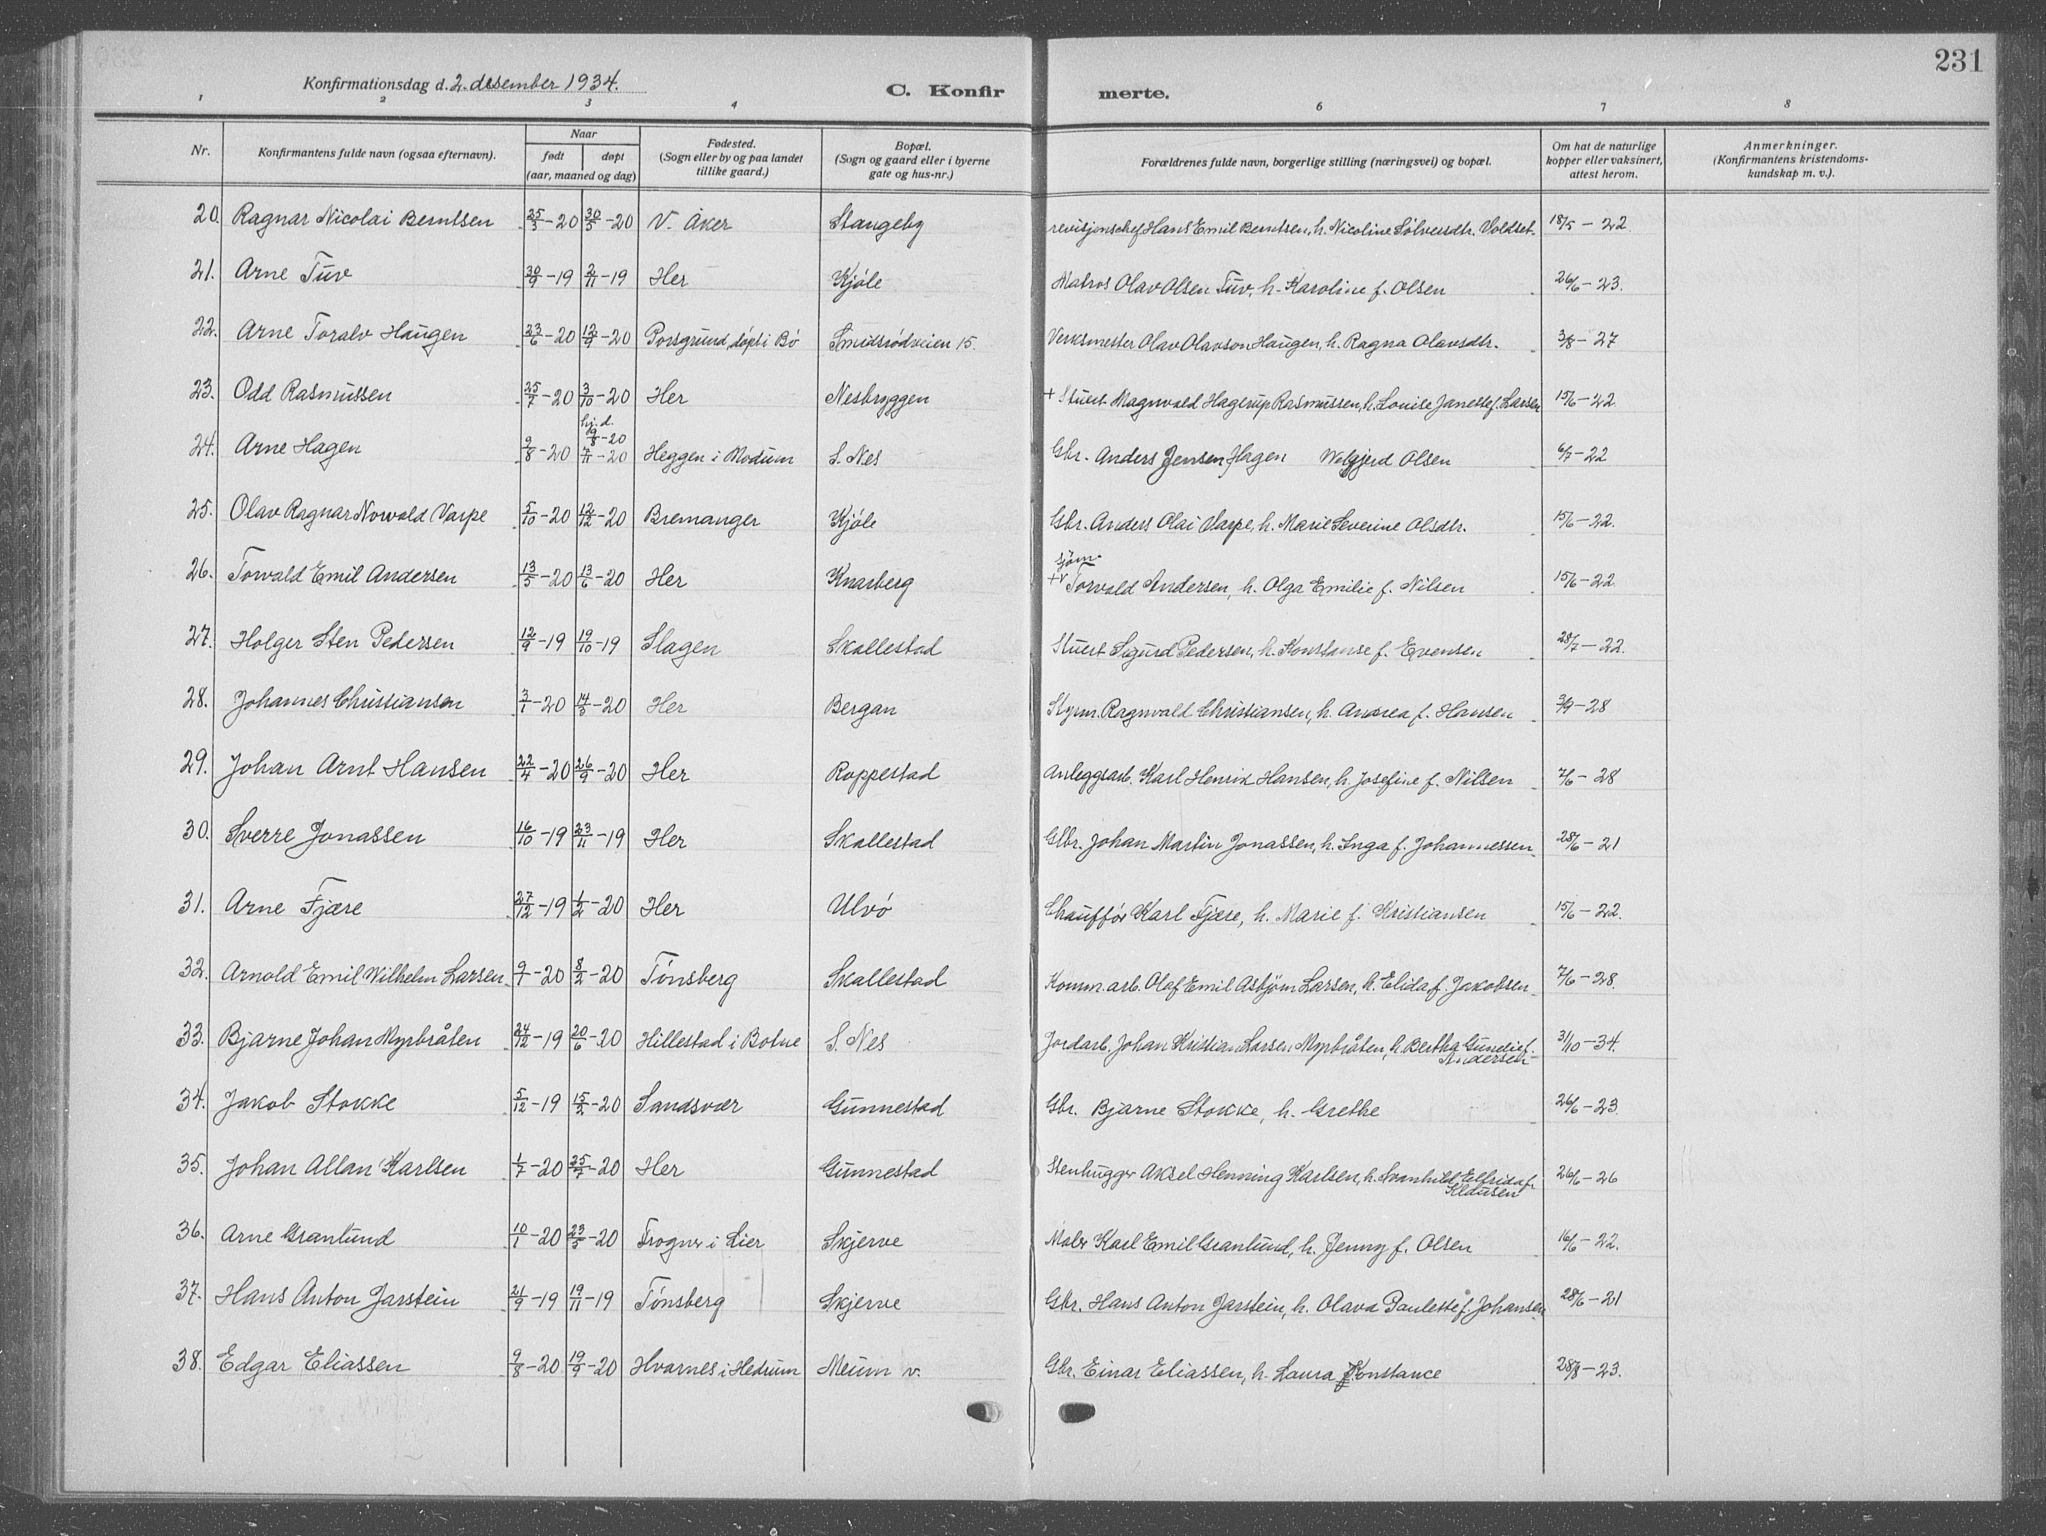 231
Konfirmationsdag d. 2. desember 1934.
C. Konfirmerte.
1 2 3 4 6 7 8
Nr. Konfirmantens fulde navn (ogsaa efternavn). Naar født døpt (aar, maaned og dag) Fødested. (Sogn eller by og paa landet tillike gaard.) Bopæl. (Sogn og gaard eller i byerne gate og hus-nr.) Forældrenes fulde navn, borgerlige stilling (næringsvei) og bopæl. Om hat de naturlige kopper eller vaksinert, attest herom. Anmerkninger. (Konfirmantens kristendoms-kundskap m. v.).
20. Ragnar Nicolai Berntsen 25/3-20 30/5-20 V. Aker Stangeby revisjonschef Hans Emil Berntsen, h. Nicoline Sølvesdtr. Voldset 18/5-22.
21. Arne Tuv 30/9-19 2/11-19 Her Kjøle Matros Olav Olsen Tuv, h. Karoline f. Olsen 26/6-23.
22. Arne Toralv Haugen 23/6-20 12/9-20 Porsgrund, døpt i Bø Smidsrødveien 15. Verksmester Olav Olavson Haugen, h. Ragna Olavsdtr. 3/8-27
23. Odd Rasmussen 25/7-20 3/10-20 Her Nesbryggen + Stuert Magnvald Hagerup Rasmussen, h. Louise Janette f. Larsen 15/6-22
24. Arne Hagen 9/8-20 hj.d. 19/8-20 7/11-20 Heggen i Modum S. Nes Gbr. Anders Jensen Hagen Welgjerd Olsen 6/7-22
25. Olav Ragnar Norvald Varpe 5/10-20 12/12-20 Bremanger Kjøle Gbr. Anders Olai Varpe, h. Marie Severine Olsdtr. 15/6-22.
26. Torvald Emil Andersen 13/5-20 13/6-20 Her Knarberg + sjøm. Torvald Andersen, h. Olga Emilie f. Nilsen 15/6-22
27. Holger Sten Pedersen 12/9-19 19/10-19 Slagen Skallestad Stuert Sigurd Pedersen, h. Konstanse f. Evensen 28/7-22.
28. Johannes Christiansen 3/1-20 14/3-20 Her Bergan Styrm. Ragnvald Christiansen, h. Andrea f. Hansen 3/9-28
29. Johan Arnt Hansen 22/4-20 26/9-20 Her Roppestad Anleggsarb. Karl Henrik Hansen, h. Josefine f. Nilsen 7/6-28
30. Sverre Jonassen 16/10-19 23/11-19 Her Skallestad Gbr. Johan Martin Jonassen, h. Inga f. Johannessen 28/6-21
31. Arne Fjære 27/12-19 1/2-20 Her Ulvø Chauffør Karl Fjære, h. Marie f. Kristiansen 15/6-22.
32. Arnold Emil Wilhelm Larsen 9/1-20 8/2-20 Tønsberg Skallestad Komm.arb. Olaf Emil Asbjørn Larsen, h. Elida f. Jakobsen 7/6-28.
33. Bjarne Johan Myrbråten 24/12-19 20/6-20 Hillestad i Botne S. Nes Jordarb. Johan Kristian Larsen Myrbråten, h. Bertha Gunesie f. Andersen 31/10-34.
34. Jakob Stokke 5/12-19 15/2-20 Sandsvær Gunnestad Gbr. Bjarne Stokke, h. Grethe 26/6-23.
35. Johan Allan Karlsen 1/7-20 25/7-20 Her Gunnestad Stenhugger Aksel Henning Karlsen, h. Svanhild Elfrida f. Klausen 26/6-26
36. Arne Granlund 10/1-20 23/3-20 Frogner i Lier Skjerve Maler Karl Emil Granlund, h. Jenny f. Olsen 16/6-22.
37. Hans Anton Jarstein 21/9-19 19/11-19 Tønsberg Skjerve Gbr. Hans Anton Jarstein, h. Olava Paulette f. Johansen 28/6-21
38. Edgar Eliassen 9/8-20 19/9-20 Hvarnes i Hedrum Meum v. Gbr. Einar Eliassen, h. Laura Konstance 28/8-23.